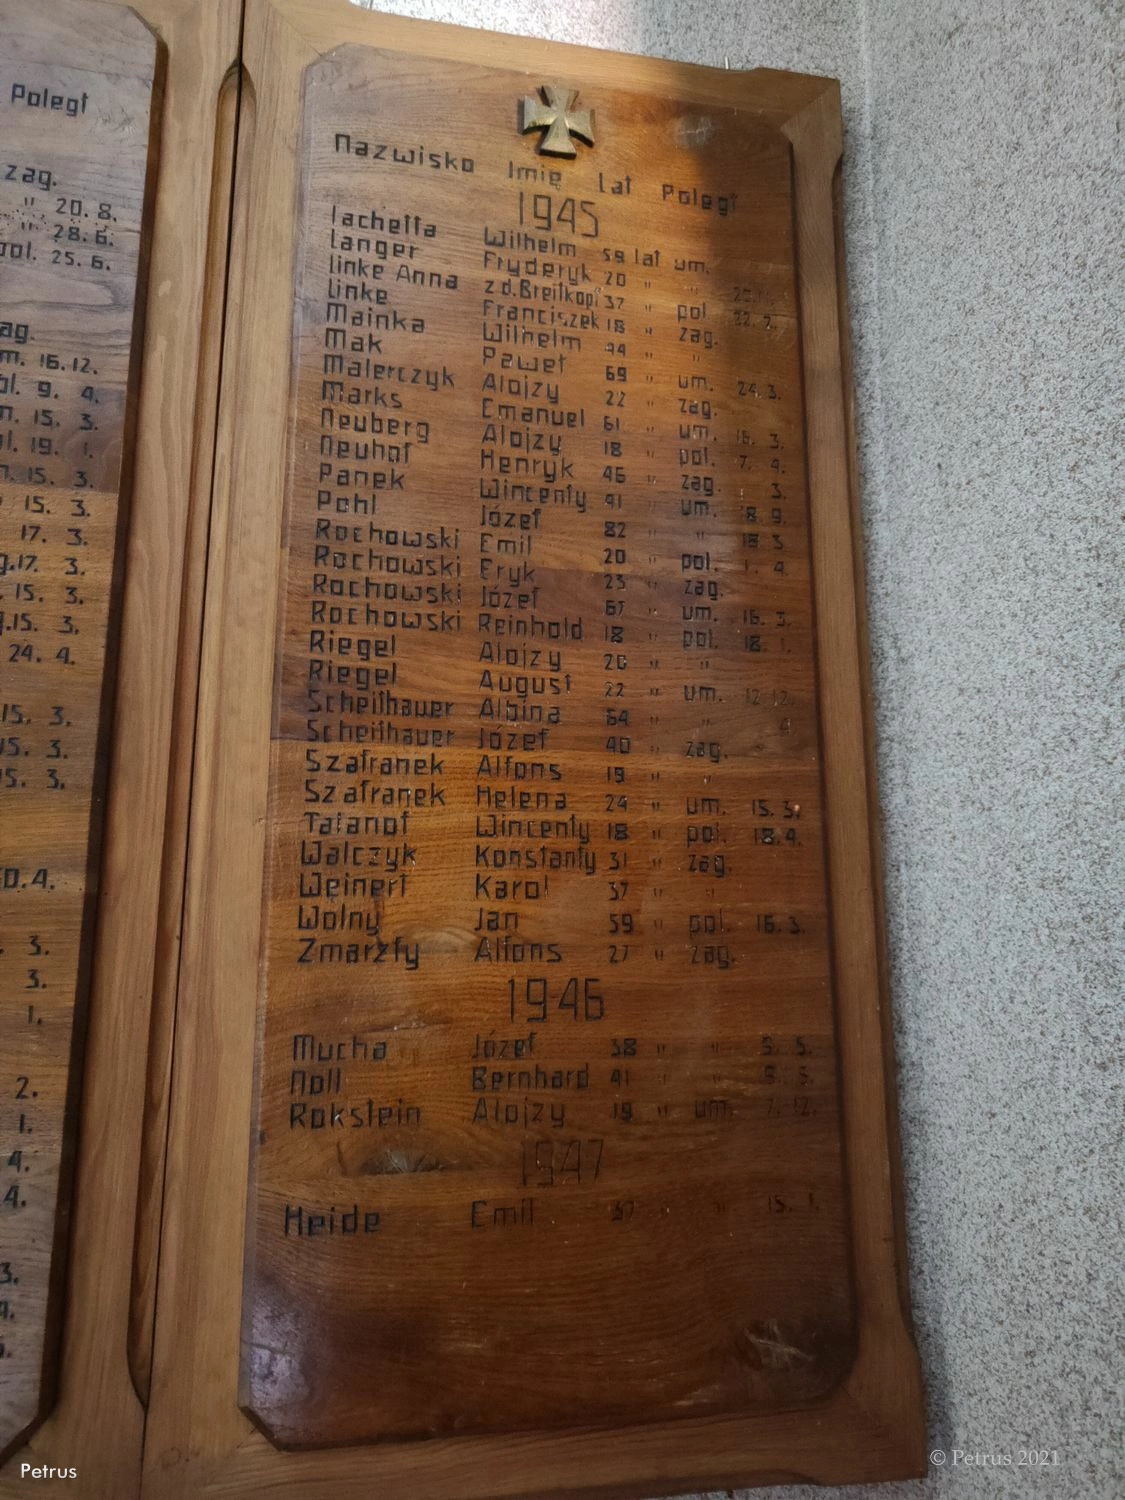 Poległ
zag.
" 20. 8.
" 28. 6.
pol. 25. 6.
16. 12.
9. 4.
15. 3.
19. 1.
15. 3.
15. 3.
17. 3.
17. 3.
15. 3.
15. 3.
24. 4.
15. 3.
15. 3.
15. 3.
3.
3.
1.
2.
1.
4.
4.
3.
Nazwisko Imię Lat Poległ
1945
Iachetta Wilhelm 59 lat um.
Langer Fryderyk 20 " "
Linke Anna z d. Breitkopf 37 " pol. 22. 2.
Linke Franciszek 18 " zag.
Mainka Wilhelm 44 " "
Mak Paweł 69 " um. 24. 3.
Malerczyk Alojzy 22 " zag.
Marks Emanuel 61 " um. 16. 3.
Neuberg Alojzy 18 " pol. 7. 4.
Neuhof Henryk 46 " zag. 3.
Panek Wincenty 41 " um. 8. 9.
Pohl Józef 82 " " 18. 3.
Rochowski Emil 20 " pol. 1. 4.
Rochowski Eryk 23 " zag.
Rochowski Józef 67 " um. 16. 3.
Rochowski Reinhold 18 " pol. 18. 1.
Riegel Alojzy 20 " "
Riegel August 22 " um. 12. 12.
Scheithauer Albina 64 " " 4
Scheithauer Józef 40 " zag.
Szafranek Alfons 19 " "
Szafranek Helena 24 " um. 15. 3.
Tatanof Wincenty 18 " pol. 18. 4.
Walczyk Konstanty 31 " zag.
Weinert Karol 37 " "
Wolny Jan 59 " pol. 16. 3.
Zmarzły Alfons 27 " zag.
1946
Mucha Józef 38 " " 5. 5.
Noll Bernhard 41 " " 5.
Rokstein Alojzy 19 " um. 7. 12.
1947
Heide Emil 37 " " 15. 1.
Petrus
© Petrus 2021